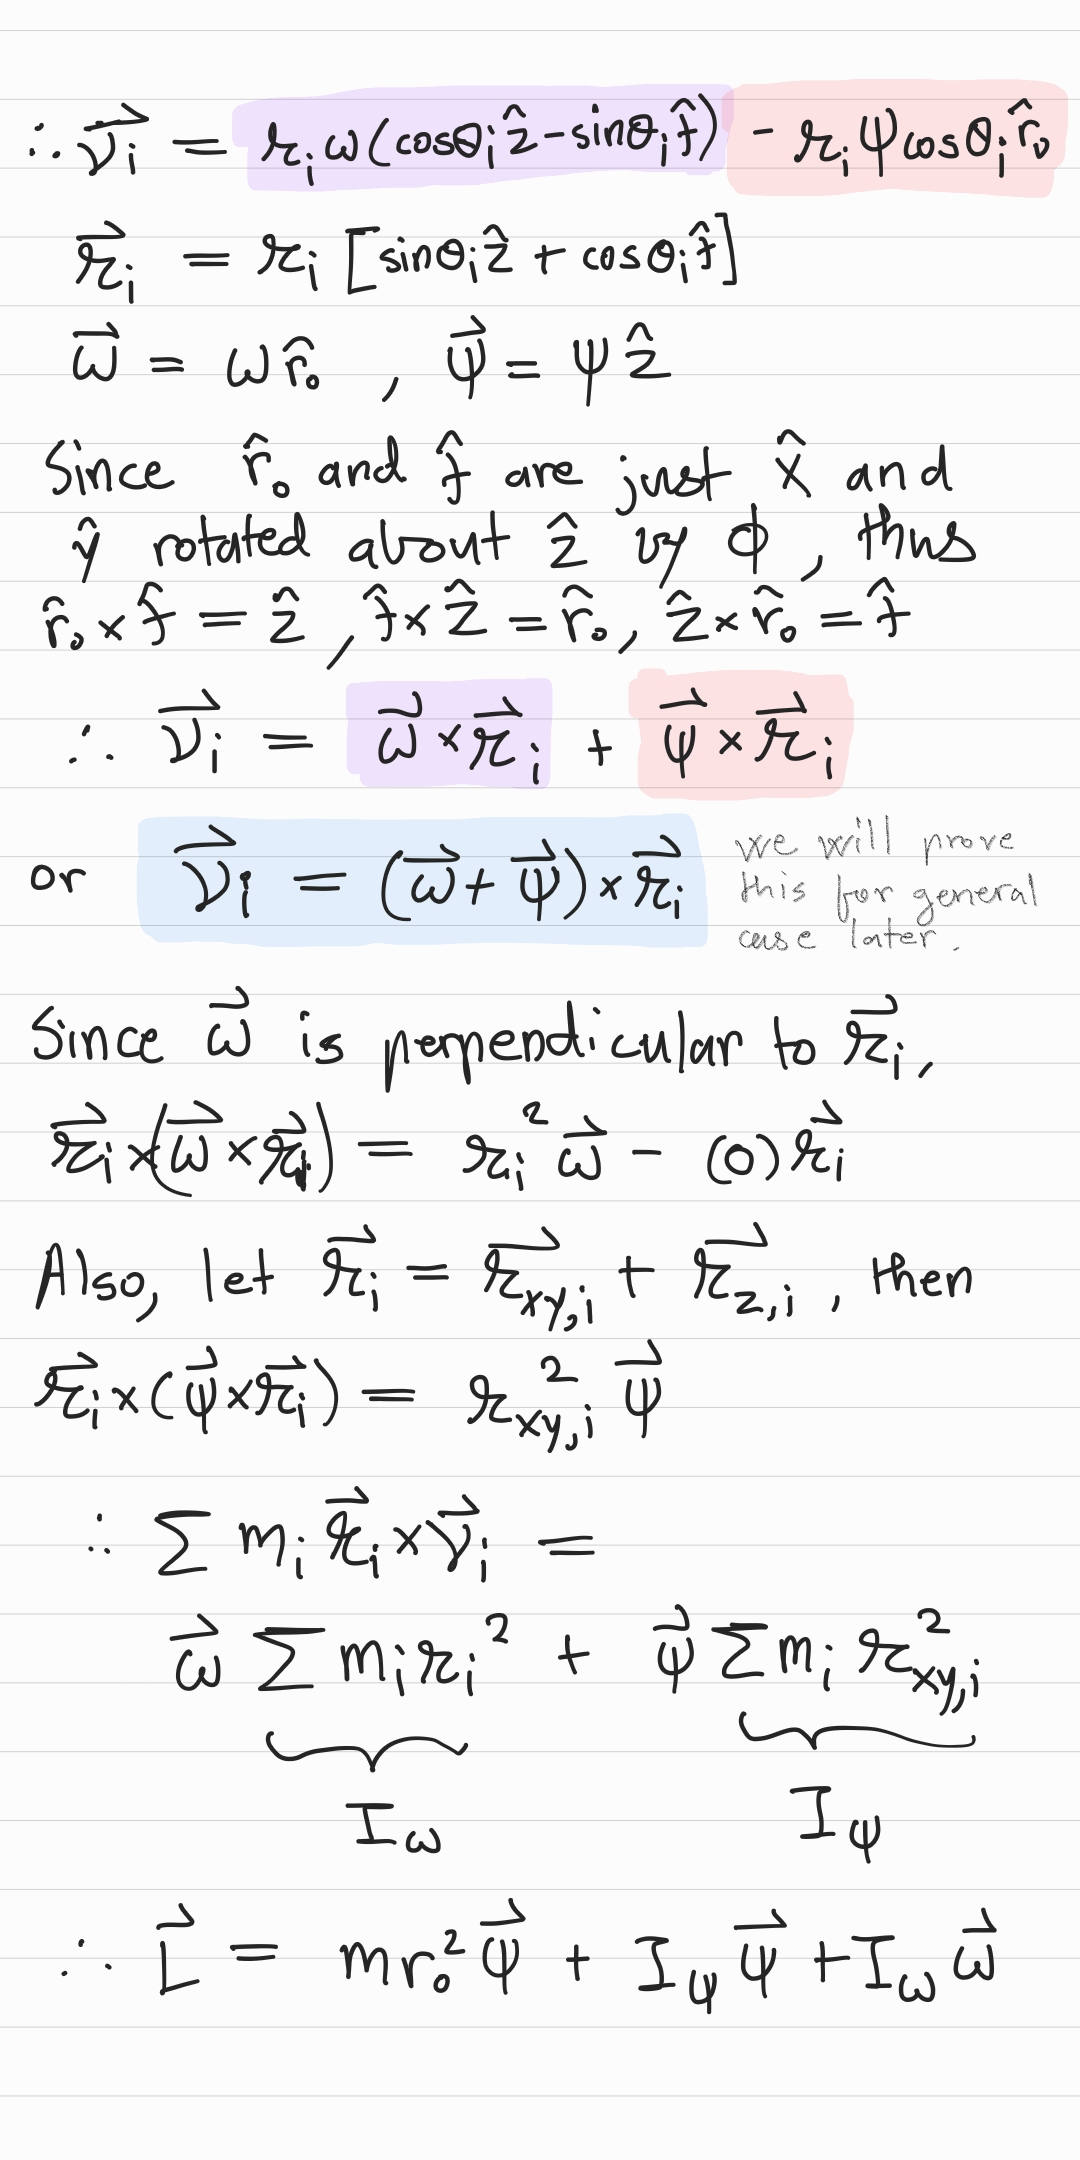 ∴ v⃗ᵢ = rᵢω(cosθᵢ ẑ − sinθᵢ f̂) − rᵢψcosθᵢ r̂₀
r⃗ᵢ = rᵢ [sinθᵢ ẑ + cosθᵢ f̂]
ω⃗ = ω r̂₀ , ψ⃗ = ψ ẑ
Since r̂₀ and f̂ are just x̂ and
ŷ rotated about ẑ by ϕ, thus
r̂₀ × f̂ = ẑ , f̂ × ẑ = r̂₀, ẑ × r̂₀ = f̂
∴ v⃗ᵢ = ω⃗ × r⃗ᵢ + ψ⃗ × r⃗ᵢ
or v⃗ᵢ = (ω⃗ + ψ⃗) × r⃗ᵢ
we will prove
this for general
case later.
Since ω⃗ is perpendicular to r⃗ᵢ,
r⃗ᵢ × (ω⃗ × r⃗ᵢ) = rᵢ² ω⃗ − (0) r⃗ᵢ
Also, let r⃗ᵢ = r⃗_{xy,i} + r⃗_{z,i} , then
r⃗ᵢ × (ψ⃗ × r⃗ᵢ) = r²_{xy,i} ψ⃗
∴ ∑ mᵢ r⃗ᵢ × v⃗ᵢ =
ω⃗ ∑ mᵢ rᵢ² + ψ⃗ ∑ mᵢ r²_{xy,i}
I_ω I_ψ
∴ L⃗ = mr₀² ψ⃗ + I_ψ ψ⃗ + I_ω ω⃗